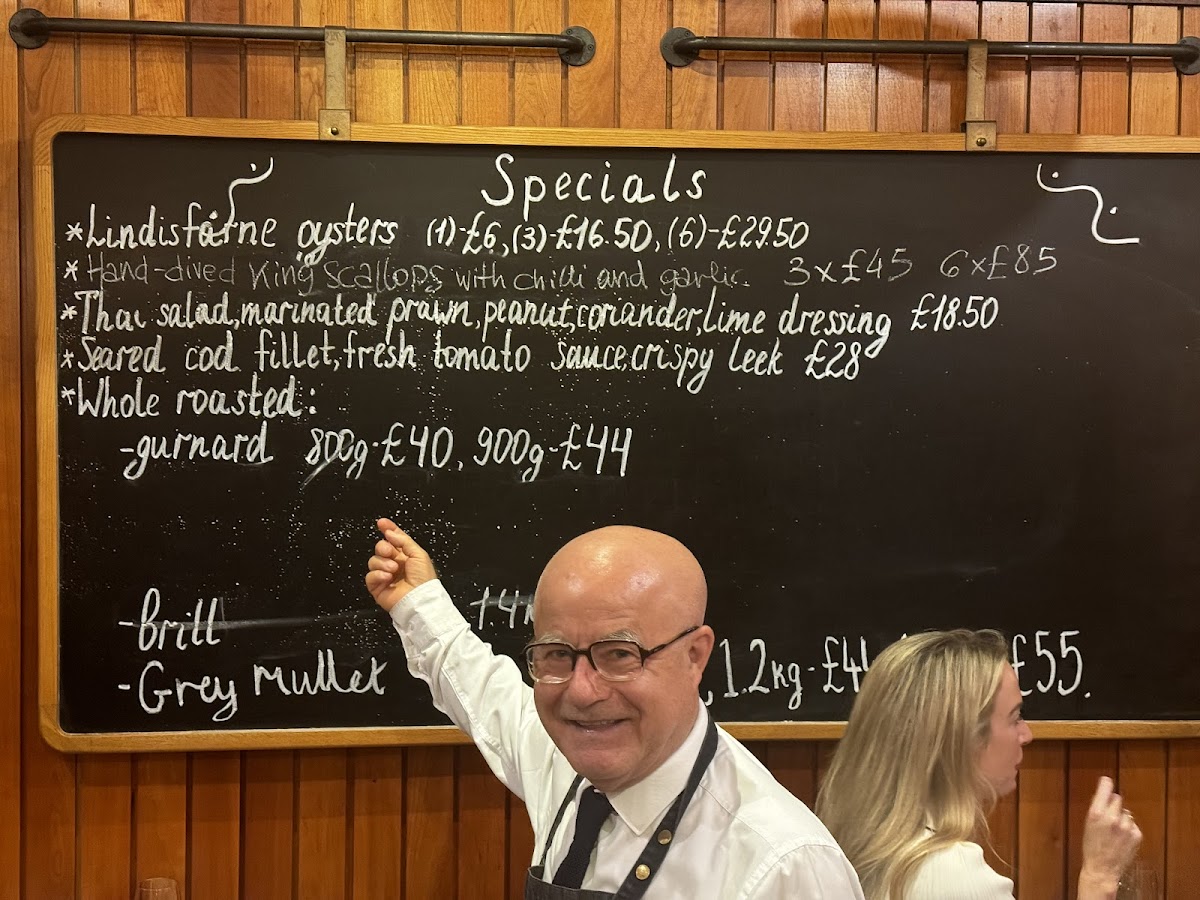 Specials
*Lindisfarne oysters (1)-£6, (3)-£16.50, (6)-£29.50
*Hand-dived King Scallops with chilli and garlic. 3x£45 6x£85
*Thai salad, marinated prawn, peanut, coriander, lime dressing £18.50
*Seared cod fillet, fresh tomato sauce, crispy leek £28
*Whole roasted:
-gurnard 800g-£40, 900g-£44
-Brill 1.4
-Grey Mullet , 1.2kg-£4 £55.